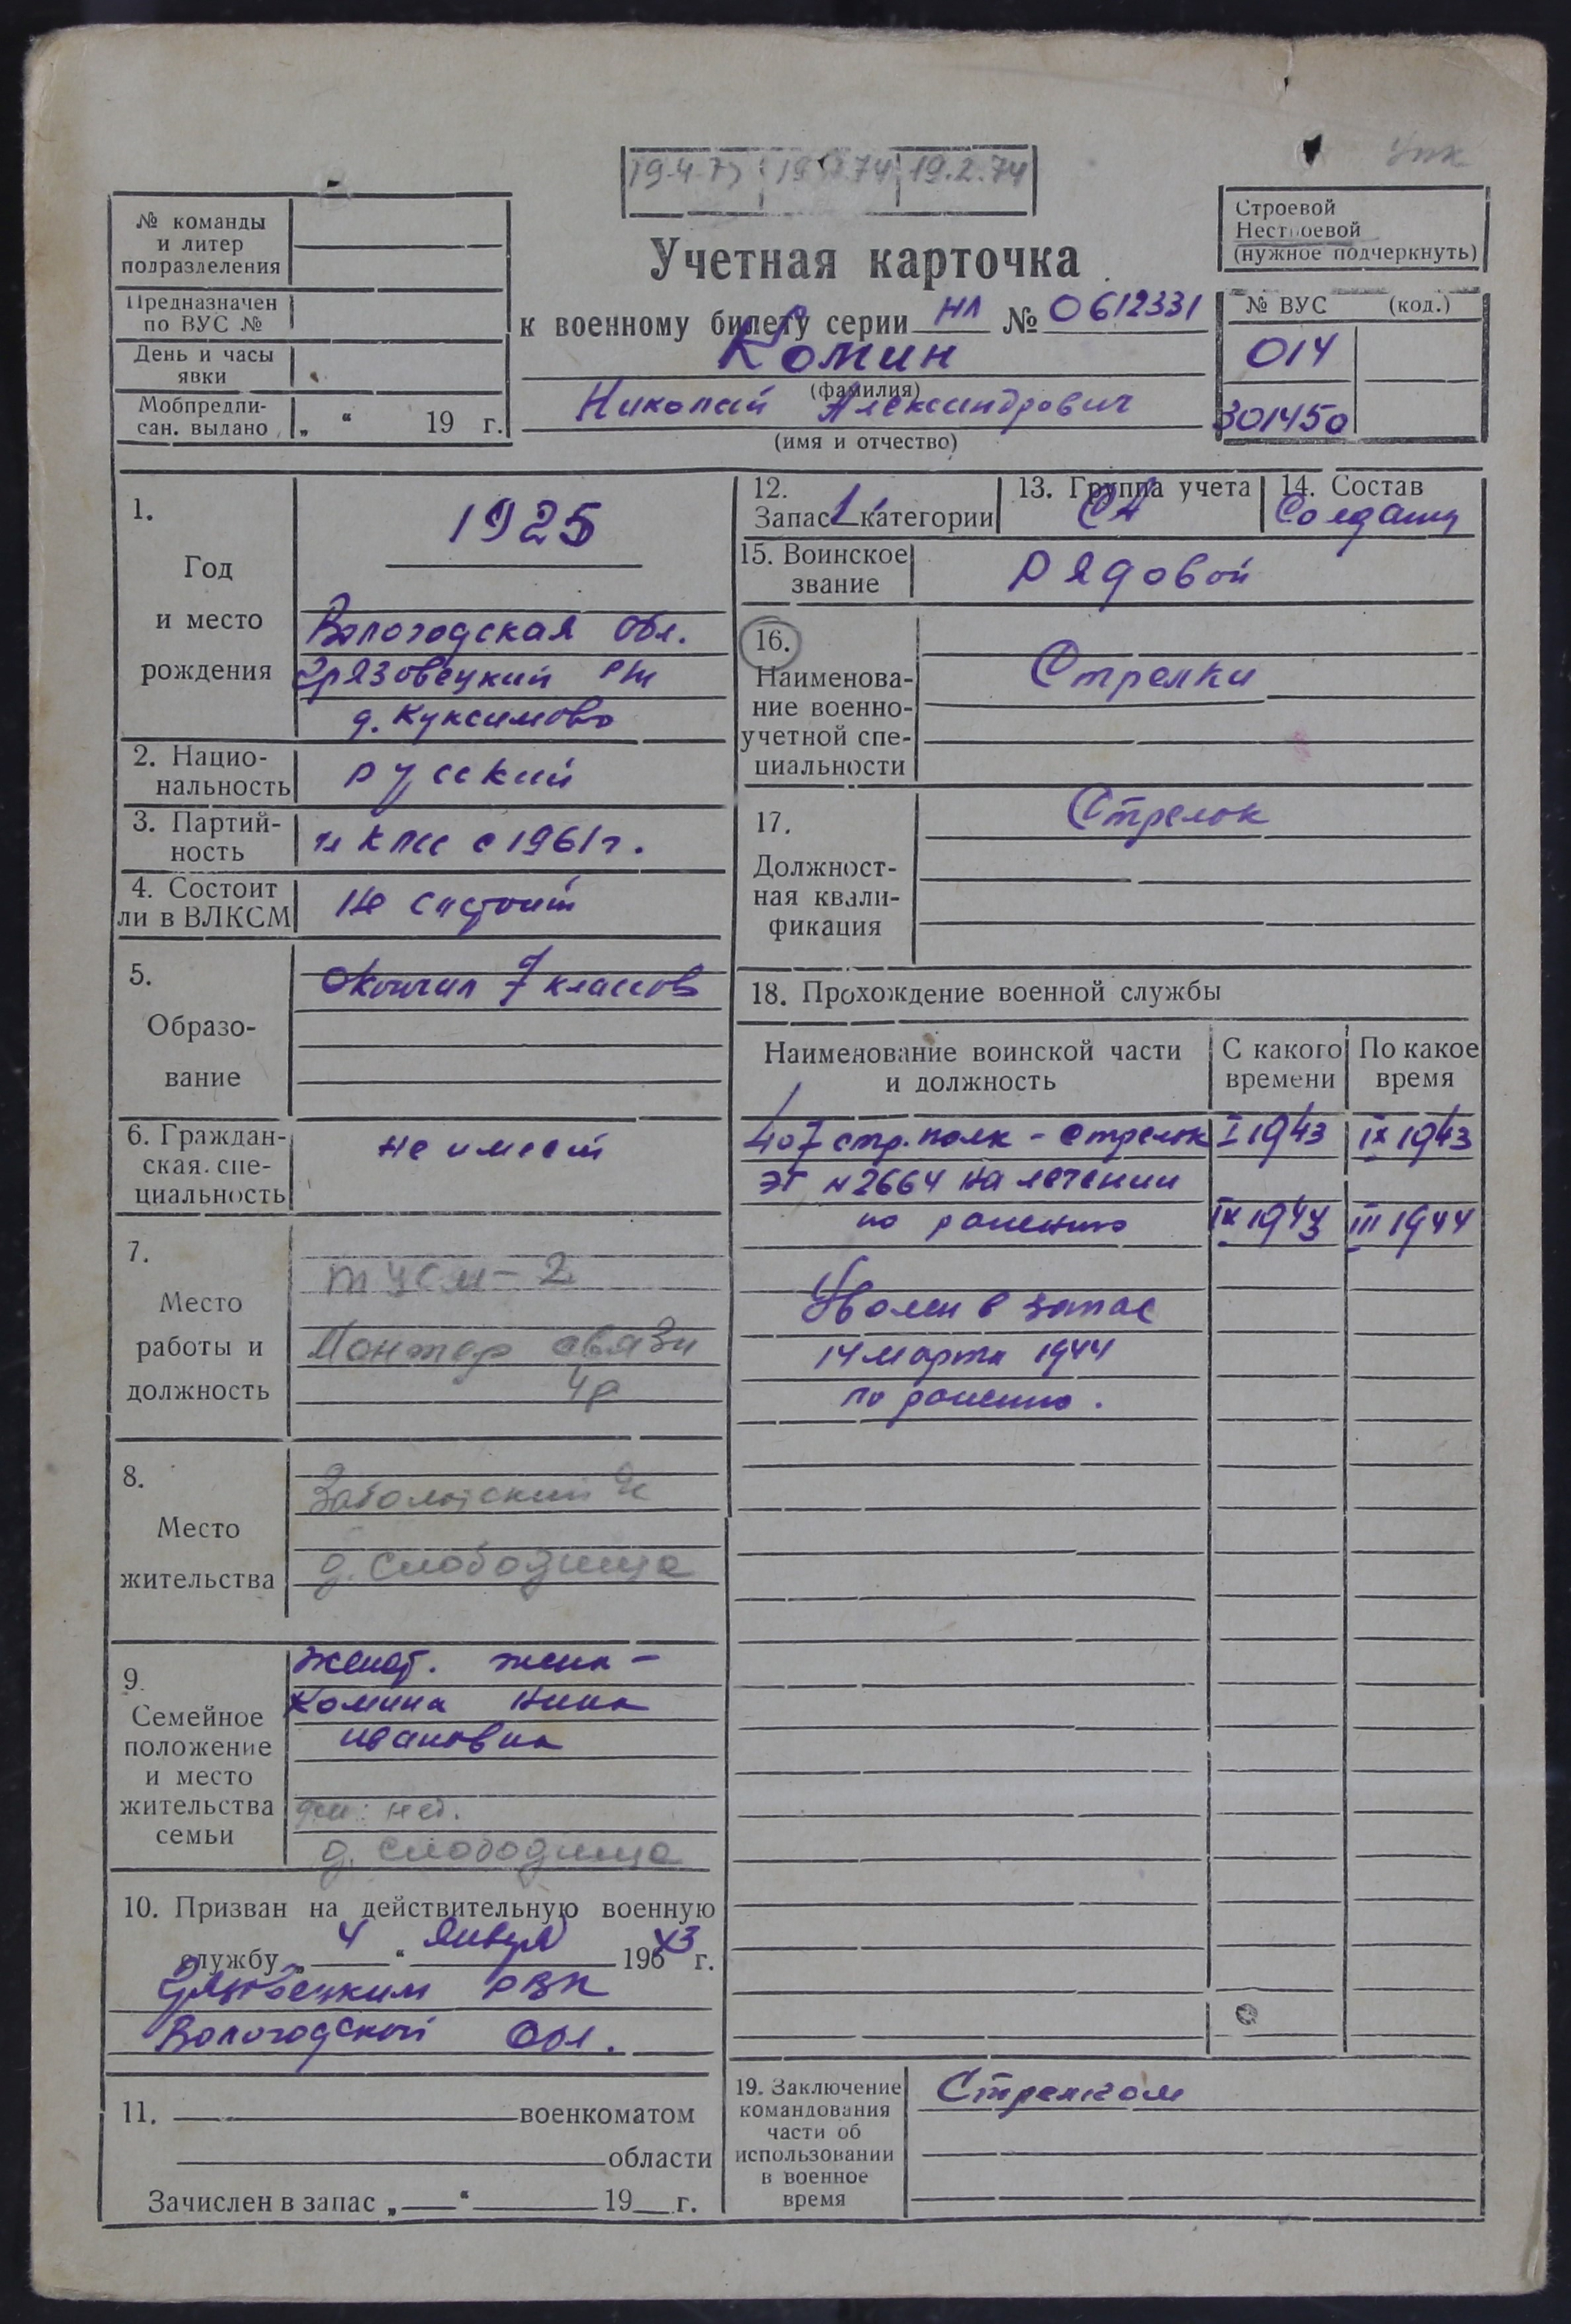 упк
19.4.73 19.2.74 19.2.74
№ команды
и литер
подразделения
Предназначен
по ВУС №
День и часы
явки
Мобпредпи-
сан. выдано „ “ 19 г.
Учетная карточка
к военному билету серии НЛ № 0612331
Комин
(фамилия)
Николай Александрович
(имя и отчество)
Строевой
Нестроевой
(нужное подчеркнуть)
№ ВУС (код.)
014
301450
1.
Год
и место
рождения
1925
Вологодская обл.
Грязовецкий р/н
д. Куксимово
2. Нацио-
нальность
русский
3. Партий-
ность
чл КПСС с 1961 г.
4. Состоит
ли в ВЛКСМ
Не состоит
5.
Образо-
вание
Окончил 7 классов
6. Граждан-
ская спе-
циальность
не имеет
7.
Место
работы и
должность
ТУСМ-2
Монтер связи
4р
8.
Место
жительства
Заболотский с/с
д. Слободища
9.
Семейное
положение
и место
жительства
семьи
Женат. жена -
Комина Нина
Ивановна
дети: нет.
д. Слободища
10. Призван на действительную военную
службу „ 4 “ января 19643 г.
Грязовецким РВК
Вологодской Обл.
11. военкоматом
области
Зачислен в запас „ “ 19 г.
12.
Запас 1 категории
13. Группа учета
СА
14. Состав
Солдаты
15. Воинское
звание
рядовой
16.
Наименова-
ние военно-
учетной спе-
циальности
Стрелки
17.
Должност-
ная квали-
фикация
Стрелок
18. Прохождение военной службы
Наименование воинской части
и должность
С какого
времени
По какое
время
407 стр. полк - стрелок I 1943 IX 1943
ЭГ №2664 на лечении
по ранению IX 1943 III 1944
Уволен в запас
14 марта 1944
по ранению.
19. Заключение
командования
части об
использовании
в военное
время
Стрелком